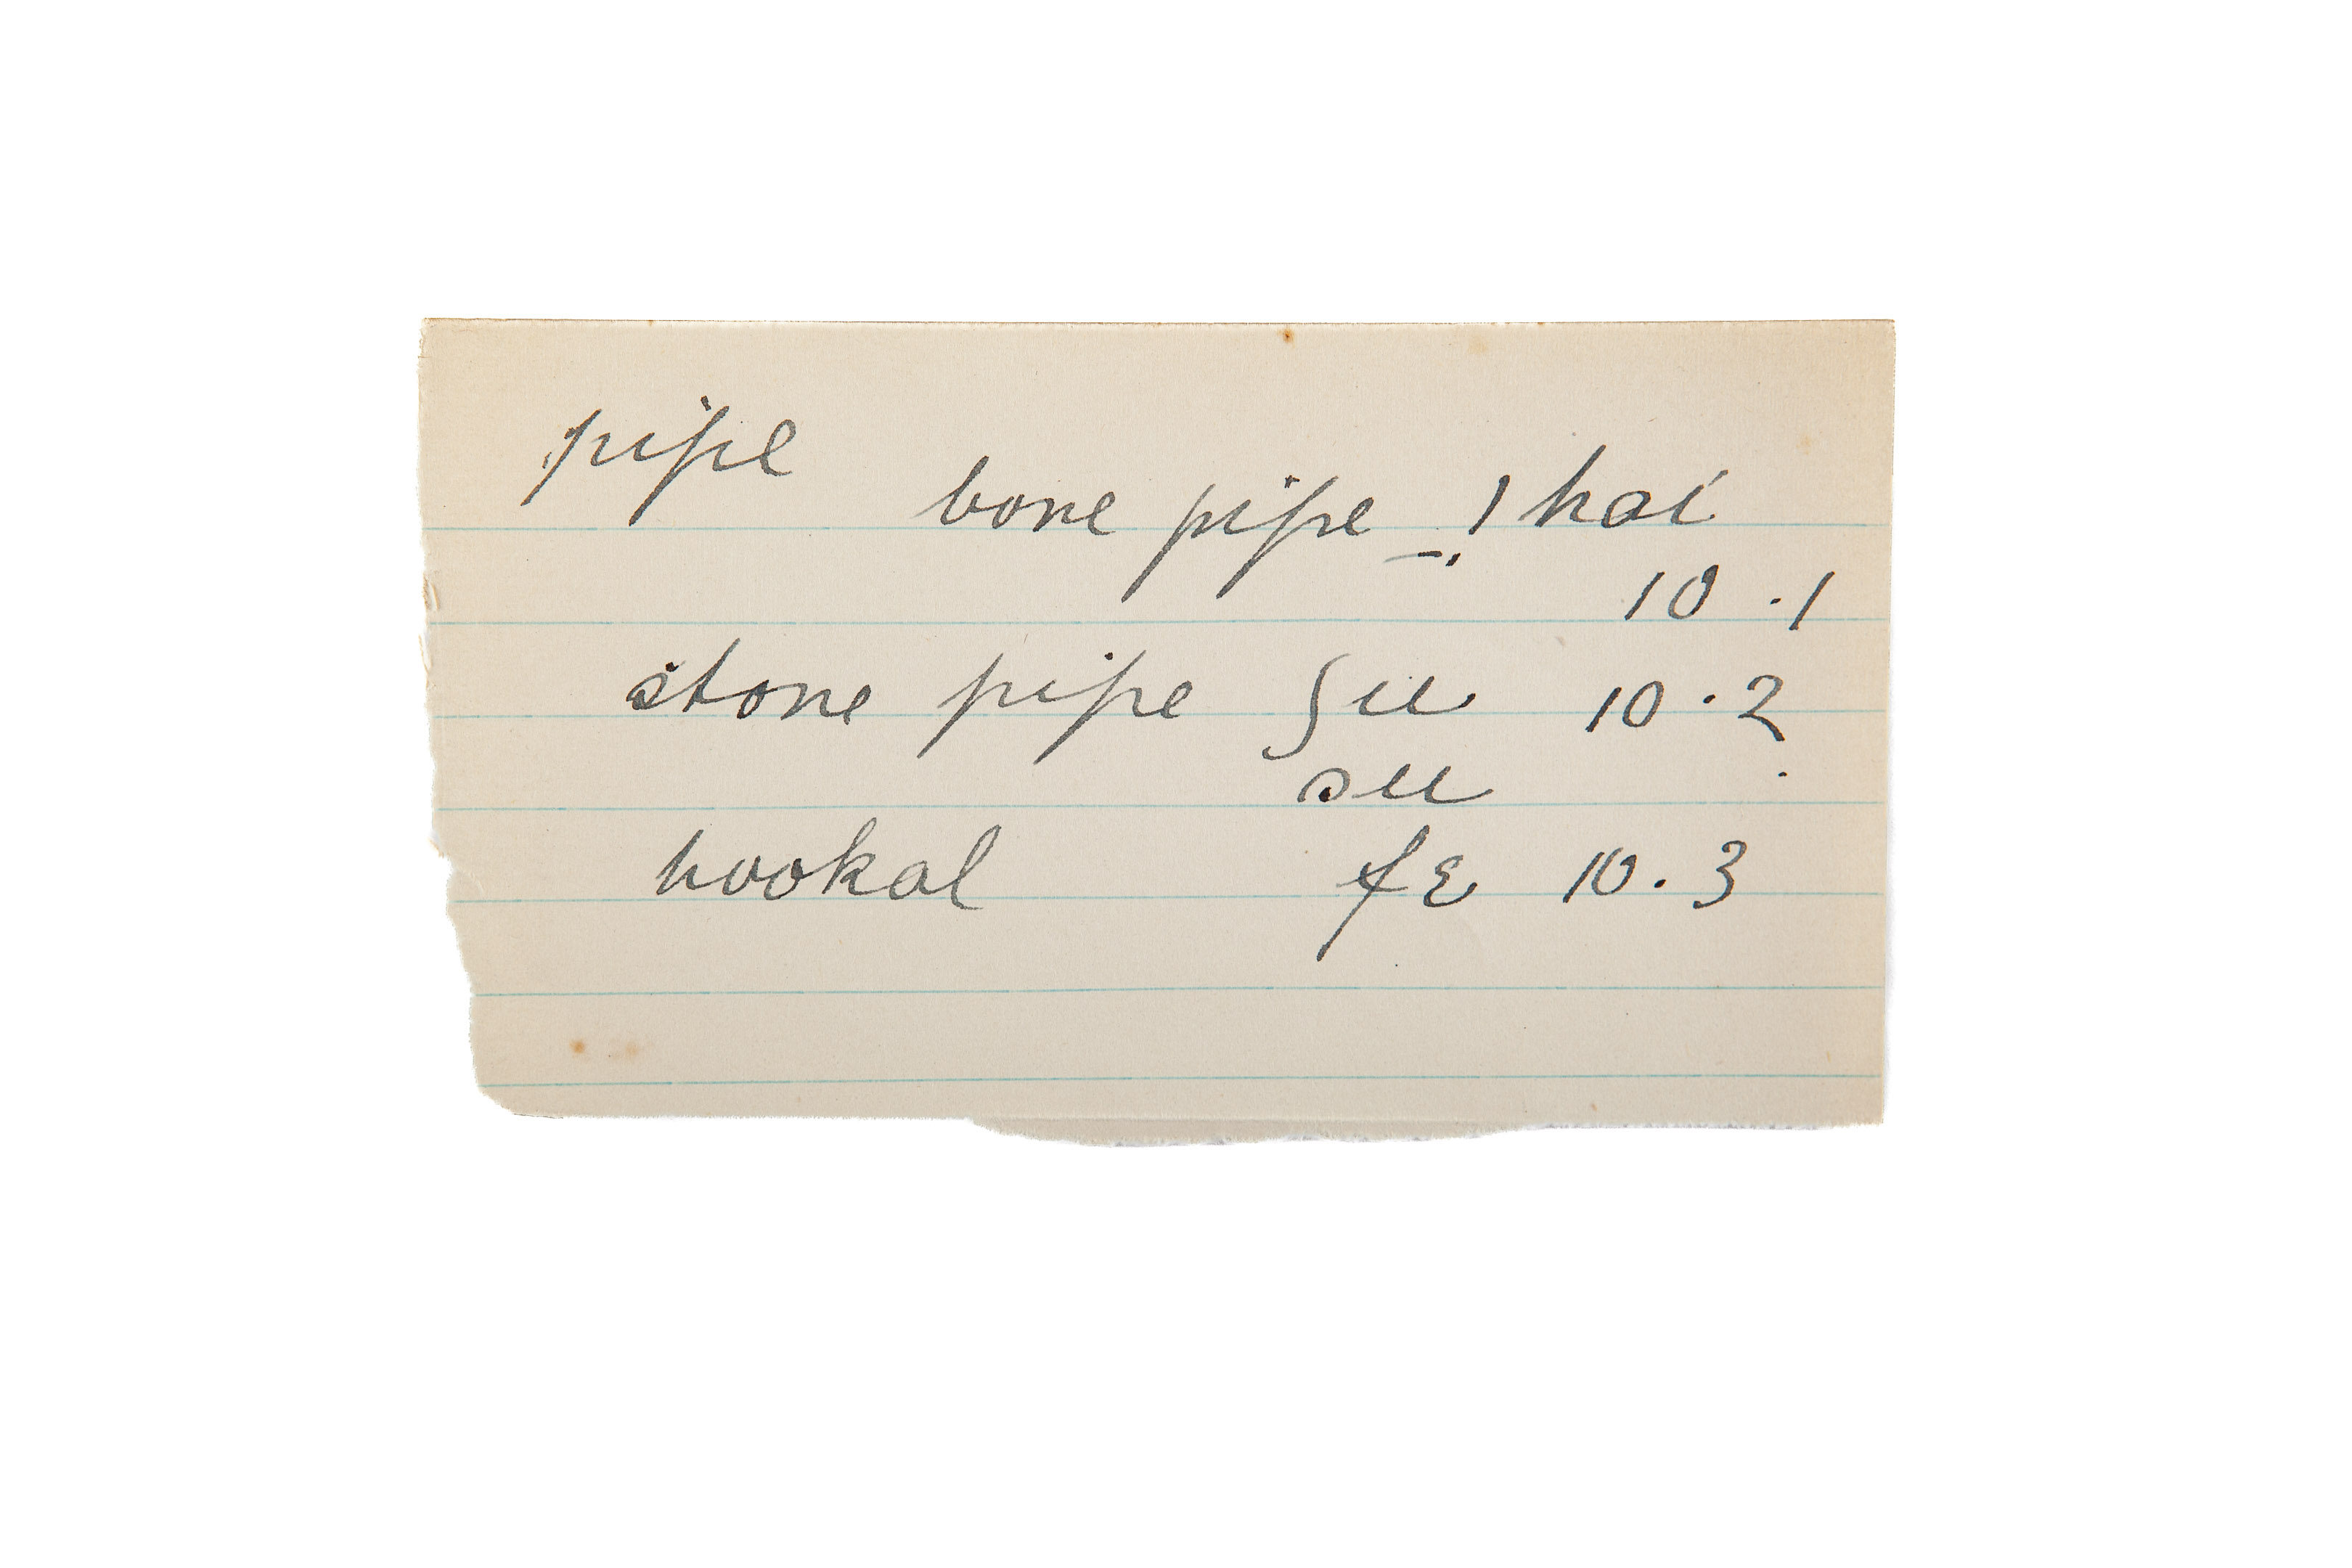 pipe
bone pipe _!hai
10.1
stone pipe ʃuu 10.2
suu
hookal fɛ 10.3